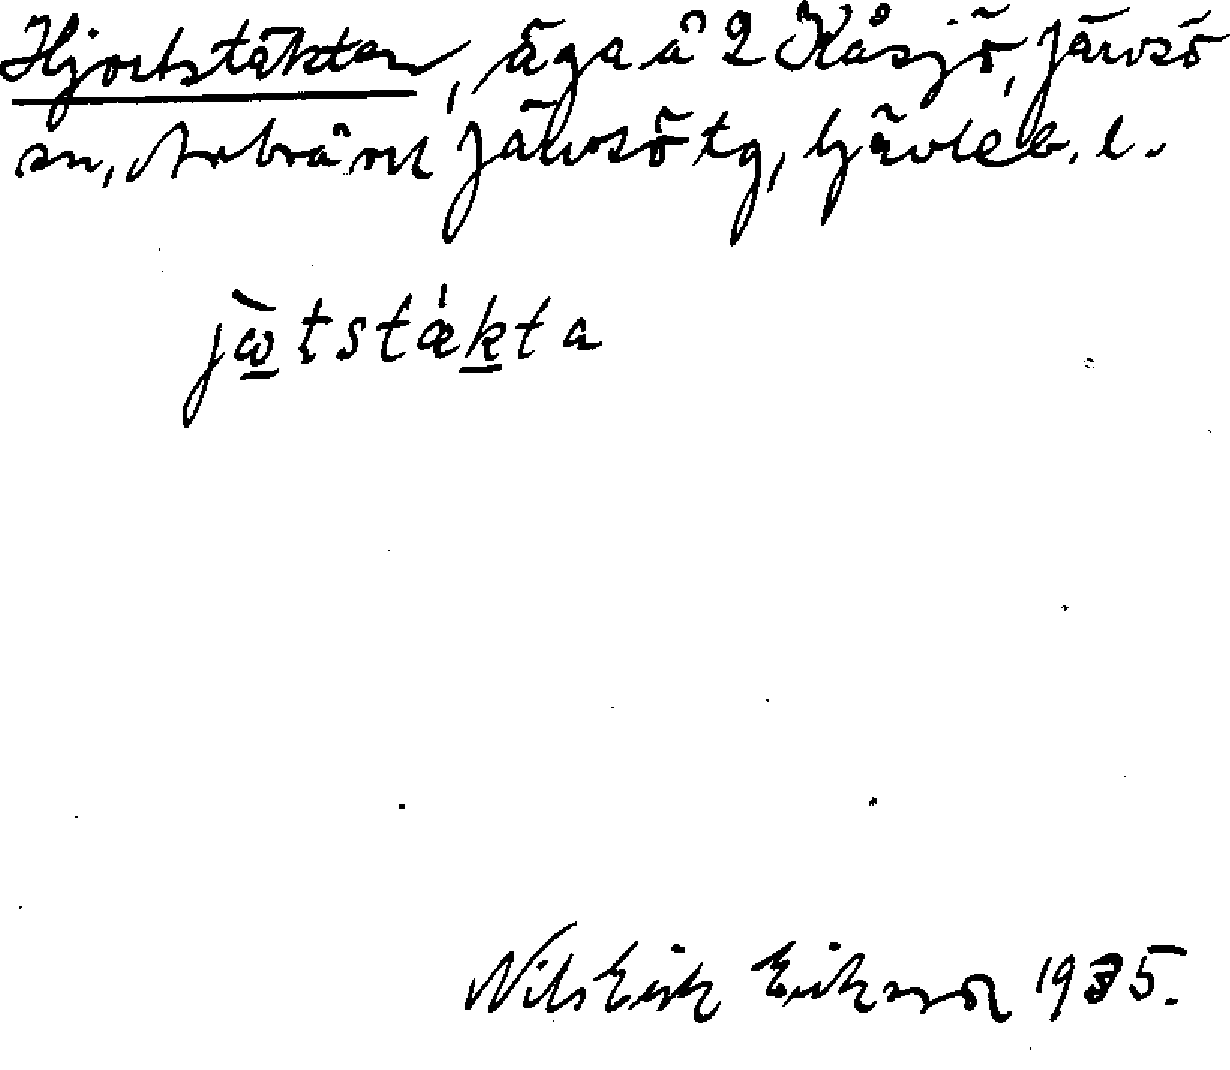 Hjortstäkten, äga å 2 Kåsjö, Järvsö
sn, Arbrå och Järvsö tg, Gävleb. l.
jὼtstǽkta
Nils Erik Eriksson 1935.